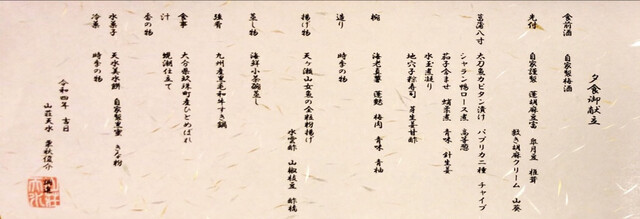 夕食御献立
食前酒 自家製梅酒
先付 自家謹製 蓮胡麻豆富 皐月豆 椎茸
敷き胡麻クリーム 山葵
菖蒲八寸 太刀魚カピタン漬け パプリカ二種 チャイブ
シャラン鴨ロース煮 髙菜巻
茄子含ませ 蛸柔煮 青味 針生姜
水玉煮凝り
地穴子粽寿司 芽生姜甘酢
椀 海老真薯 蓮麩 梅肉 青味 青柚
造り 時季の物
揚げ物 天ヶ瀬山女魚の全粒粉揚げ
水雲酢 山椒枝豆 酢橘
蒸し物 海鮮小茶碗蒸し
強肴 九州産黒毛和牛すき鍋
食事 大分県玖珠町産ひとめぼれ
汁 蜆潮仕立て
香の物 時季の物
水菓子 天水美水餅 自家製黒蜜 きな粉
冷菓 時季の物
令和四年 吉日
山荘天水